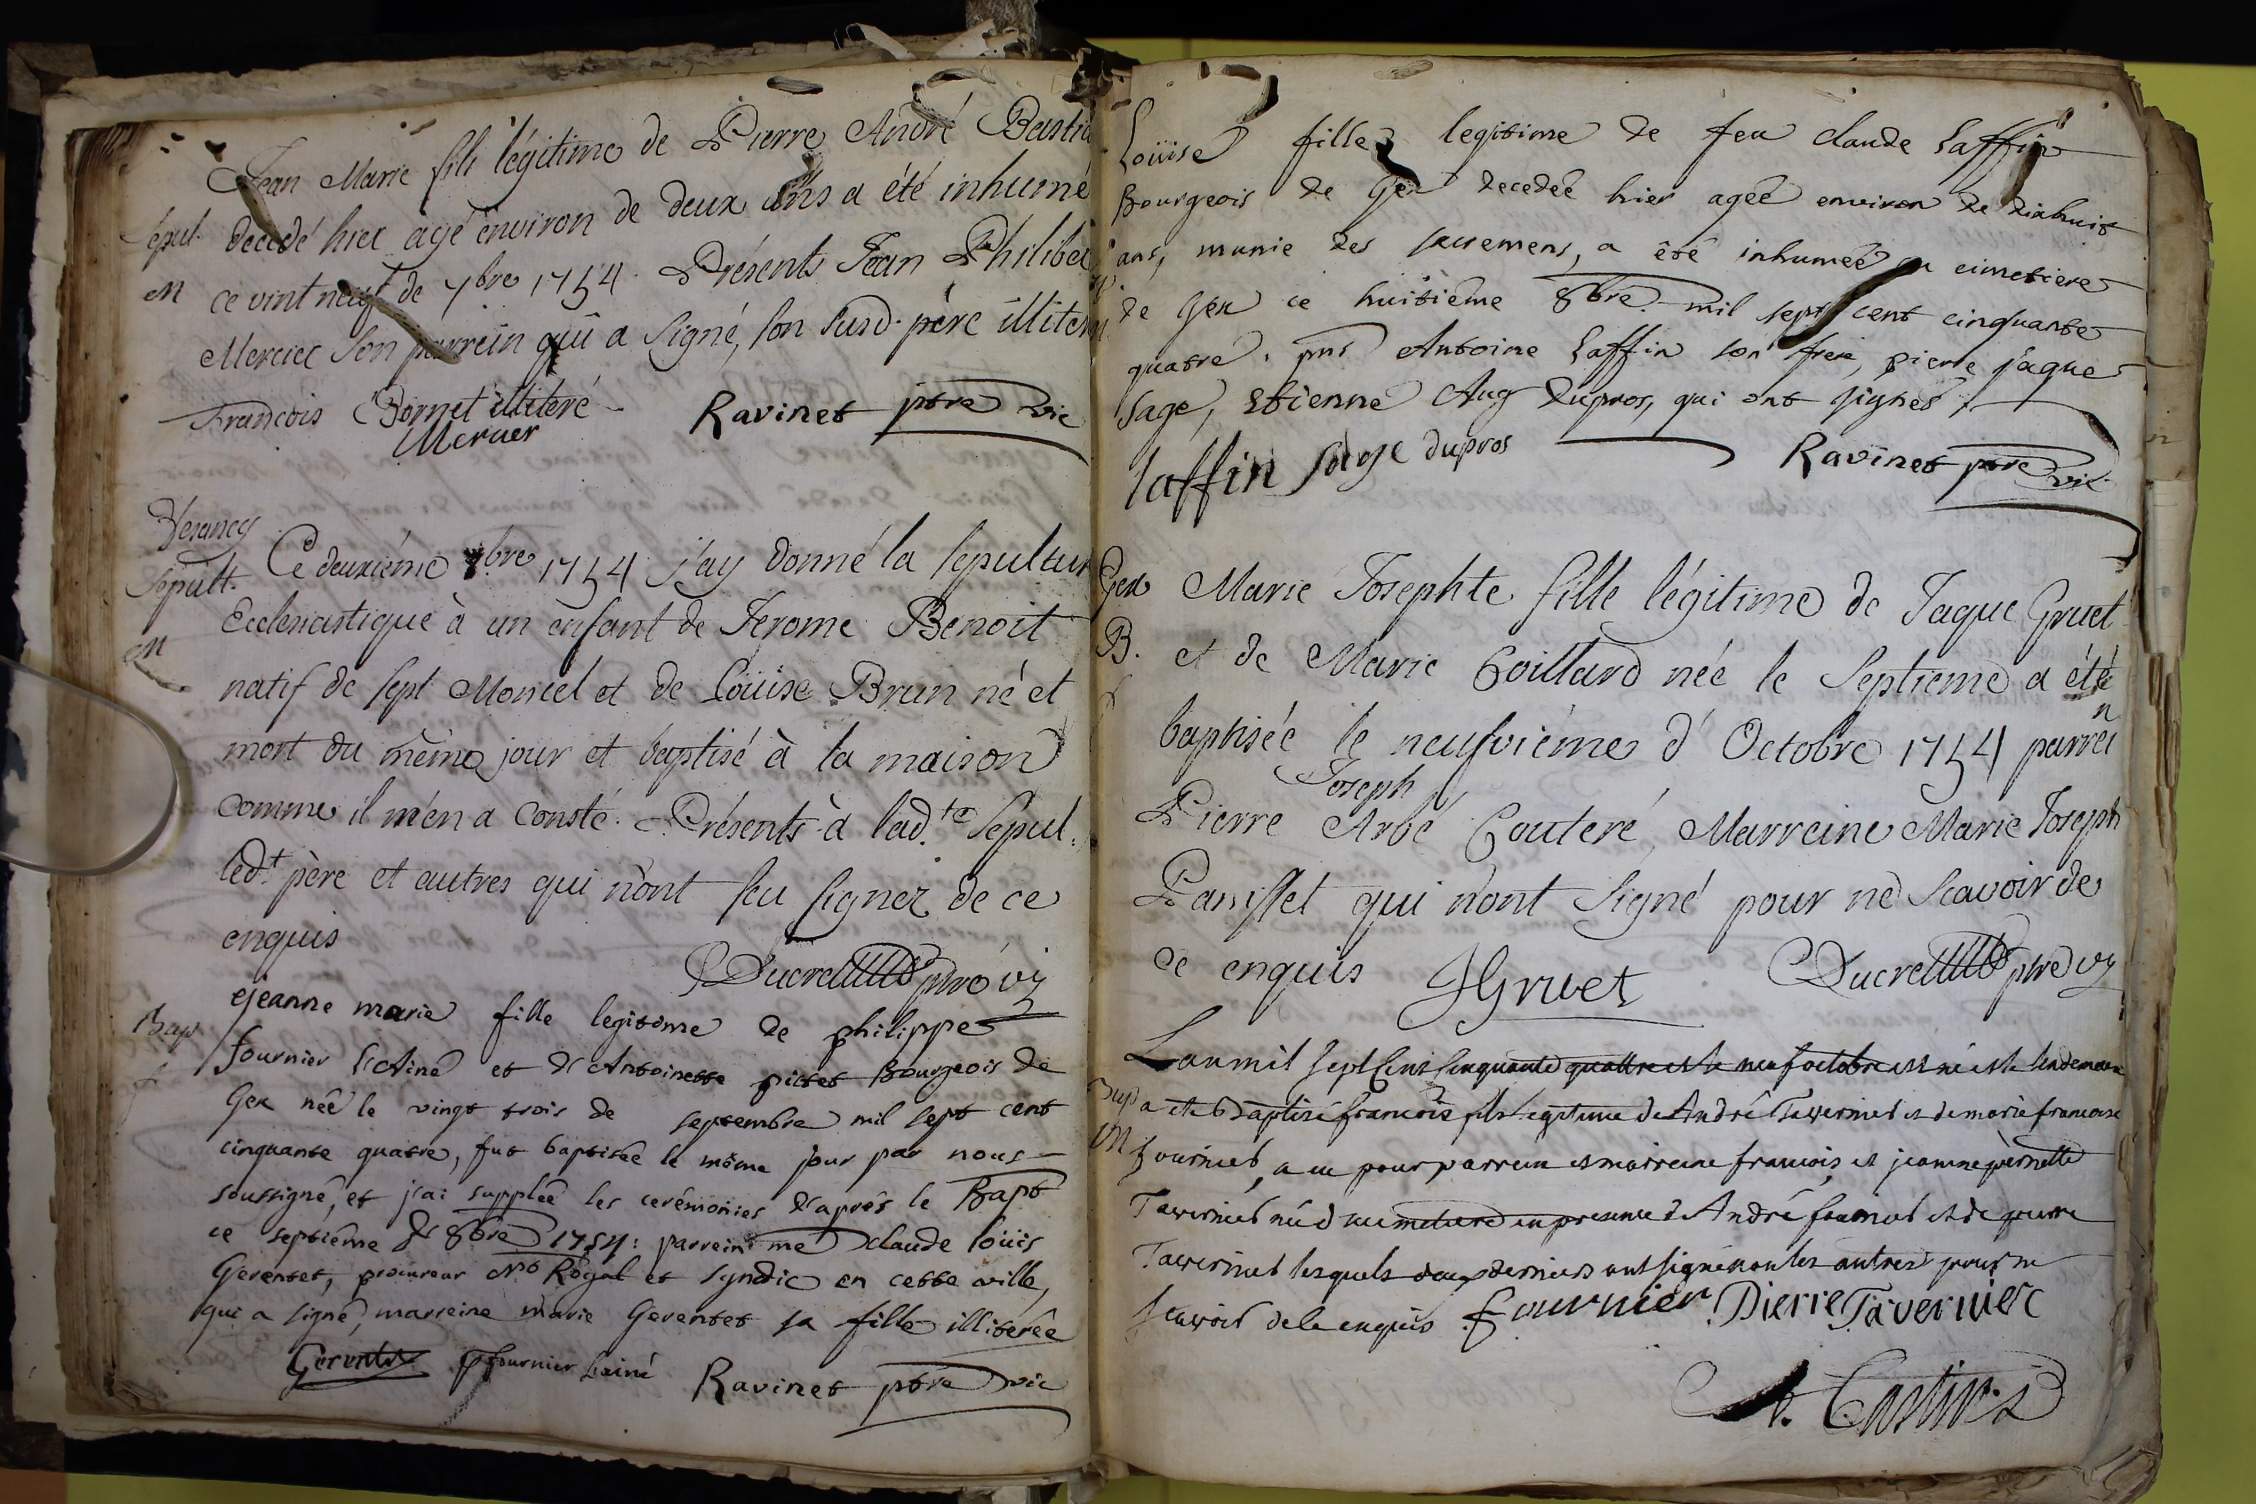 Jean Marie fils légitime de Pierre André Bastia
Sépul. decedé hier agé environ de deux ans a été inhumé
M ce vint neuf de 7bre 1754. Présents Jean Philiber
Mercier son parrein qui a signé, son susd. père illiteré
François Bornet illiteré
Mercier Ravinet ptre vic
Vesancy
Sepult. Ce deuxiéme 8bre 1754 j'ay donné la sepultur
Ecclesiastique à un enfant de Jerome Benoit
M
natif de sept Moncel et de Loüise Brun né et
mort du mème jour et baptisé à la maison
comme il m'en a consté. Présents à lad.te Sepul.
led.t père et autres qui n'ont sçu signer de ce
enquis
Ducret ptre vy
Bap Jeanne marie fille legitime de philippe
f fournier l'Ainé et d'Antoinette pictet Bourgeois de
Gex née le vingt trois de septembre mil sept cent
cinquante quatre, fut baptisée le même jour par nous
soussigné, et j'ai supplée les cerémonies d'aprés le Bapt
ce septième de 8bre 1754: parrein me claude loüis
Gerentet, procureur Royal et syndic en cette ville,
qui a signé, marreine marie Gerentet sa fille illiterée
Gerentet P fournier lainé Ravinet ptre vic
Loüise fille legitime de feu claude Laffin
Bourgeois de Gex decedée hier agée environ de dixhuit
ans, munie des sacremens, a été inhumée au cimetiere
de Gex ce huitième 8bre mil sept cent cinquante
quatre. pns Antoine Laffin son frere, pierre jaque
Sage, Etienne Aug Dupros, qui ont signés
laffin Sage dupros Ravinet ptre vic
Gex Marie Josephte fille légitime de Jaque Gruet
B. et de Marie Coillard née le septieme a été
f
baptisée le neufviéme d'Octobre 1754 parrein
Joseph
Pierre Arbé Couteré, Marreine Marie Joseph
Panisset qui n'ont signé pour ne scavoir de
ce enquis JGruet Ducret ptre vy
Lanmil sept Cent Cinquante quattre et le neuf octobre est né et le lendemain
Bap a eté Baptisé francois fils legitime de André Tavernier et de marie francoise
M fournier, a eu pour parrein et marreine francois et jeanne pernette
Tavernier né en presence d'André fournier et de pierre
Tavernier lesquels deux derniers ont signé non les autres pour ne
scavoir de le enquis fournier Pierre Tavernier